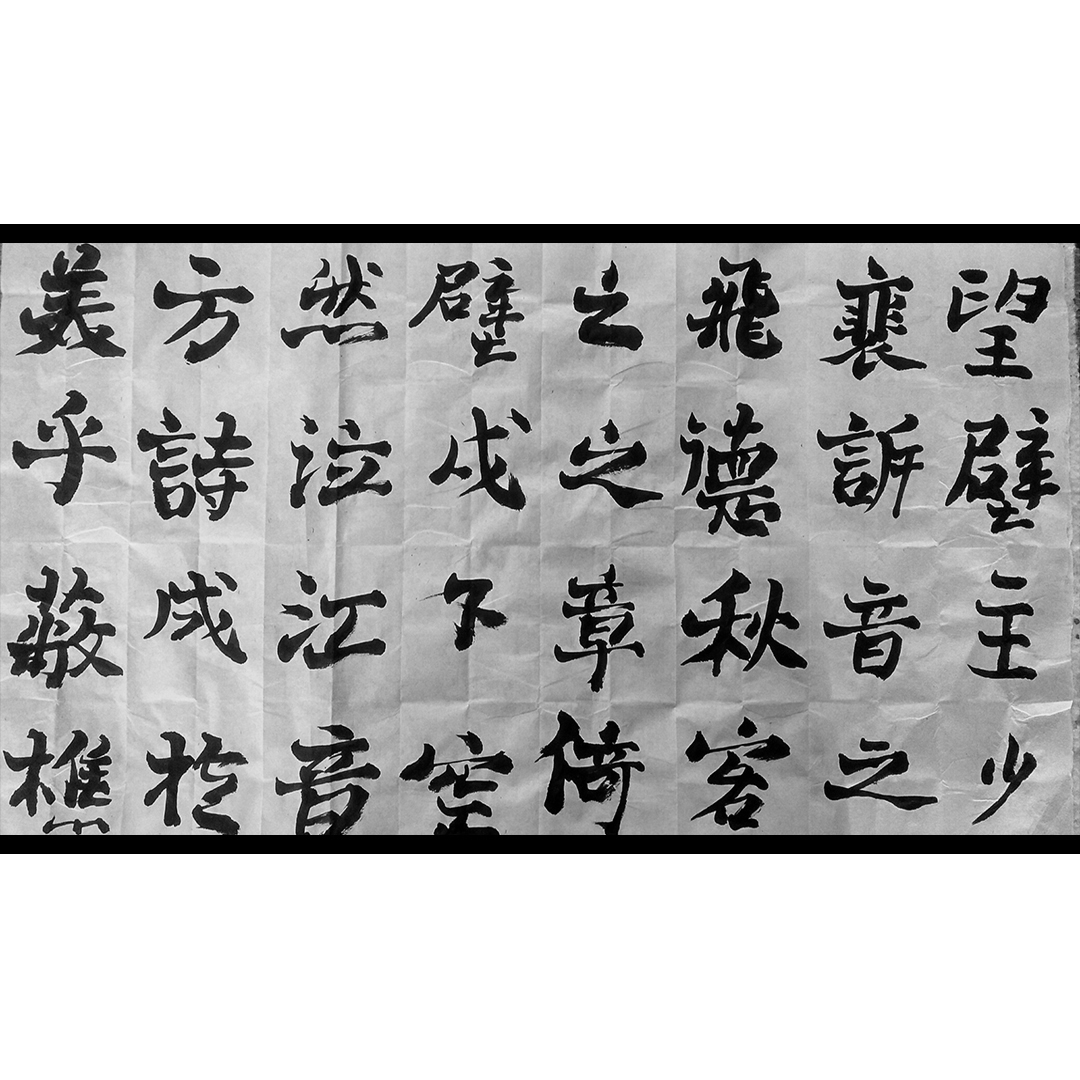 望壁主少
裵訴音之
飛德秋客
之章倚
壁戍下空
然泣江音
方詩成於
美乎蔽樵